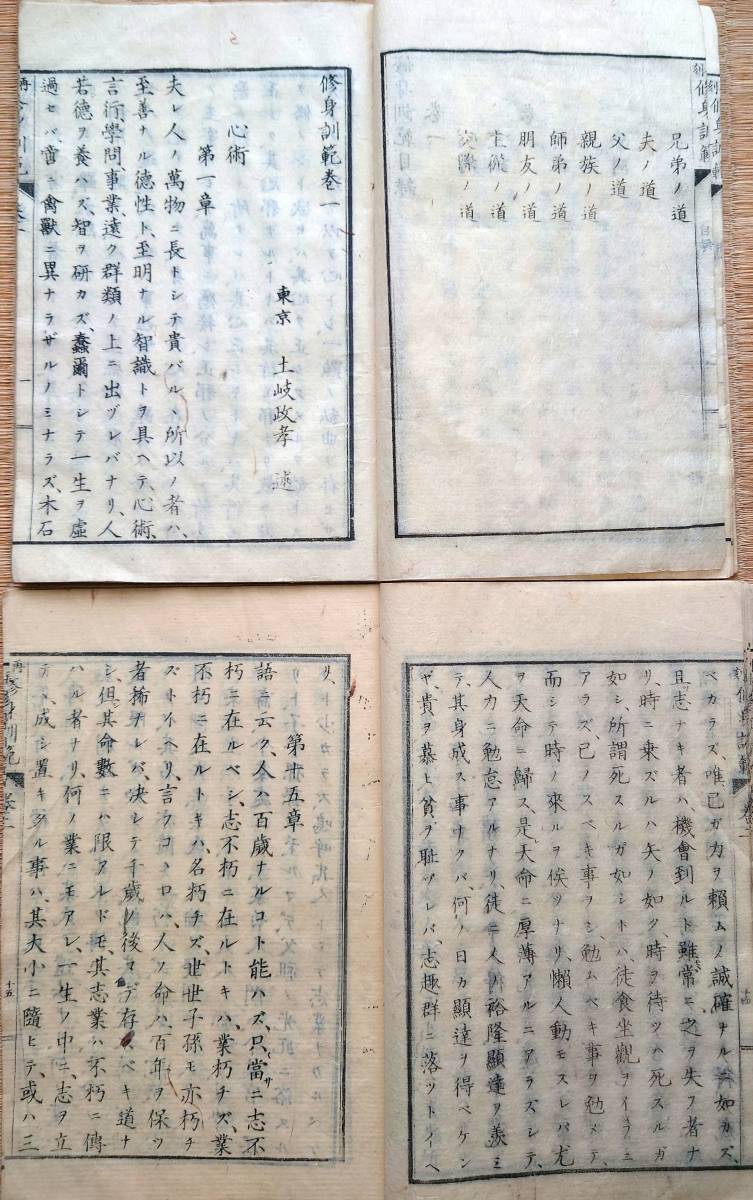 兄弟ノ道
夫ノ道
父ノ道
親族ノ道
師弟ノ道
朋友ノ道
主從ノ道
交際ノ道
修身訓範卷一
東京 土岐政孝 述
心術
第一章
夫レ人ノ萬物ニ長トシテ貴バルヽ所以ノ者ハ、
至善ナル德性ト、至明ナル智識トヲ具ヘテ、心術、
言行、學問事業、遠ク群類ノ上ニ出ヅレバナリ、人
若德ヲ養ハズ、智ヲ研カズ、蠢爾トシテ一生ヲ虛
過セバ、啻ニ禽獸ニ異ナラザルノミナラズ、木石
ベカラズ、唯己ガ力ヲ賴ムノ誠確ナルニ如カズ、
且志ナキ者ハ、機會到ルト雖常ニ之ヲ失フ者ナ
リ、時ニ乘ズルハ矢ノ如ク、時ヲ待ツハ死スルガ
如シ、所謂死スルガ如シトハ、徒食坐觀ヲイフニ
アラズ、已ノスベキ事ヲシ、勉ムベキ事ヲ勉メテ、
而シテ時ノ來ルヲ俟ツナリ、懶人動モスレバ尤
ヲ天命ニ歸ス、是天命ニ厚薄アルニアラズシテ、
人力ニ勉怠アルナリ、徒ニ人ノ裕隆顯達ヲ羨ミ
テ、其身成ス事ナクバ、何ノ日カ顯達ヲ得ベケン
ヤ、貴ヲ慕ヒ貧ヲ恥ヅレバ、志趣群ニ落ツトイヘ
リ、
第十五章
語ニ云ク、人ハ百歲ナルコト能ハズ、只當ニ志不
朽ニ在ルベシ、志不朽ニ在ルトキハ、業朽チズ、業
不朽ニ在ルトキハ、名朽チズ、世世子孫モ亦朽チ
ズトイヘリ、言フコヽロハ、人ノ命ハ、百年ヲ保ツ
者稀ナレバ、決シテ千歲ノ後マデ存スベキ道ナ
シ、但其命數ニハ限アレドモ、其志業ハ不朽ニ傳
ハル者ナリ、何ノ業ニモアレ、一生ノ中ニ、志ヲ立
テヽ、成シ置キタル事ハ、其大小ニ隨ヒテ、或ハ三